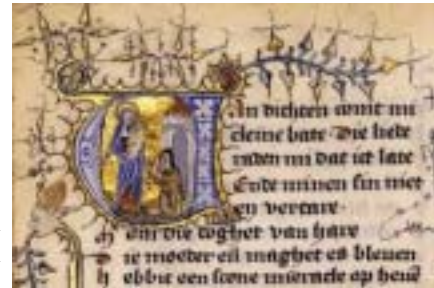 an dichten comt mi
cleine bate · Die liede
raden mi dat ict late
Ende minen sin niet
en vertare ·
om die doghet van hare
ie moeder eñ maghet es bleuen
hebbic een scone miracle op heuē